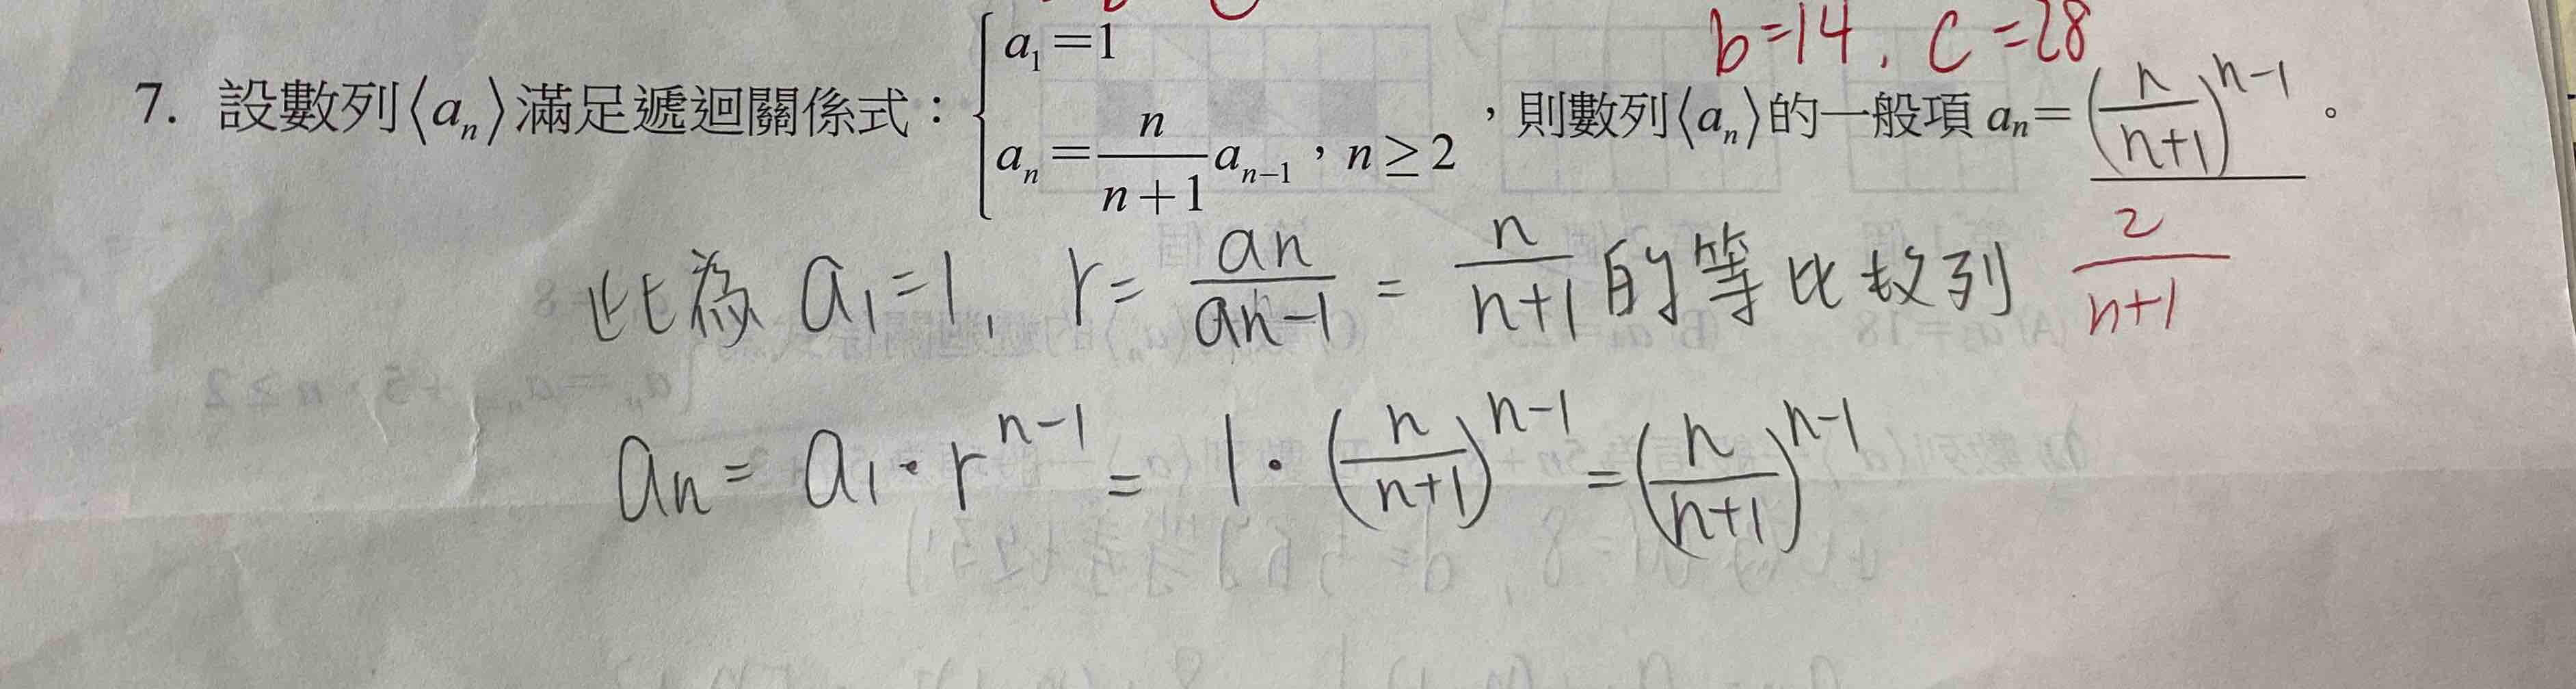 b=14, c=28
7. 設數列⟨aₙ⟩滿足遞迴關係式：{a₁=1, aₙ=n/(n+1) aₙ₋₁，n≥2，則數列⟨aₙ⟩的一般項 aₙ=(n/(n+1))ⁿ⁻¹。
2/(n+1)
此為 a₁=1, r= aₙ/aₙ₋₁ = n/(n+1) 的等比数列
aₙ = a₁·rⁿ⁻¹ = 1·(n/(n+1))ⁿ⁻¹ = (n/(n+1))ⁿ⁻¹